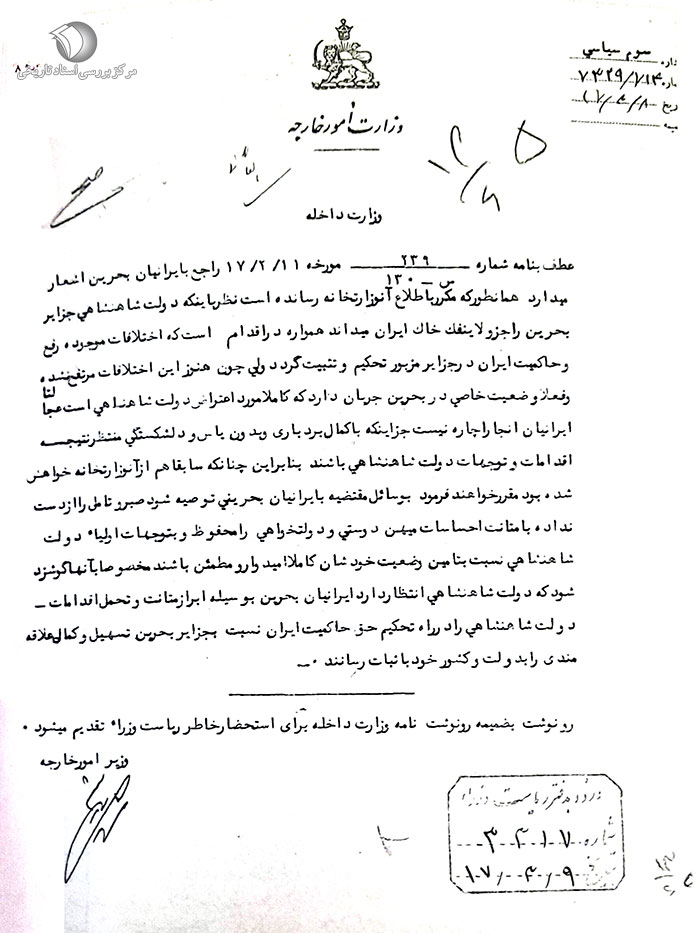 مرکز بررسی اسناد تاریخی
سوم سیاسي
۷۳۲۹/۷۱۴
وزارت امور خارجه
۵
وزارت داخله
عطف بنامه شماره ۲۳۹ / س – ۱۳۰ مورخه ۱۷/۲/۱۱ راجع بایرانیان بحرین اشعار
میدارد همانطورکه مکرر باطلاع آنوزارتخانه رسانده است نظر باینکه دولت شاهنشاهي جزایر
بحرین راجزو لاینفك خاك ایران میداند همواره در اقدام است که اختلافات موجوده رفع
و حاکمیت ایران در جزایر مزبور تحکیم و تثبیت گردد ولي چون هنوز این اختلافات مرتفع نشده
و فعلا وضعیت خاصي در بحرین جریان دارد که کاملا مورد اعتراض دولت شاهنشاهي است عجالتا
ایرانیان انجا را چاره نیست جز اینکه باکمال بردباری و بدون یاس و دلشکستگي منتظر نتیجه
اقدامات و توجهات دولت شاهنشاهي باشند بنابراین چنانکه سابقا هم از آنوزارتخانه خواهش
شده بود مقرر خواهند فرمود بوسائل مقتضیه بایرانیان بحریني توصیه شود صبر و تامل را از دست
نداده با متانت احساسات میهن دوستي و دولتخواهي را محفوظ و بتوجهات اولیاء دولت
شاهنشاهي نسبت بتامین وضعیت خودشان کاملا امیدوار و مطمئن باشند مخصوصا بآنها گوشزد
شود که دولت شاهنشاهي انتظار دارد ایرانیان بحرین بوسیله ابراز متانت و تحمل اقدامات –
دولت شاهنشاهي را در راه تحکیم حق حاکمیت ایران نسبت بجزایر بحرین تسهیل و کمال علاقه
مندی را بدولت و کشور خود باثبات رسانند ۰–
رونوشت بضمیمه رونوشت نامه وزارت داخله برای استحضار خاطر ریاست وزراء تقدیم میشود ۰
وزیر امور خارجه
ورود بدفتر ریاست وزراء
شماره ۳۴۱۷
تاریخ ۱۷/۴/۹